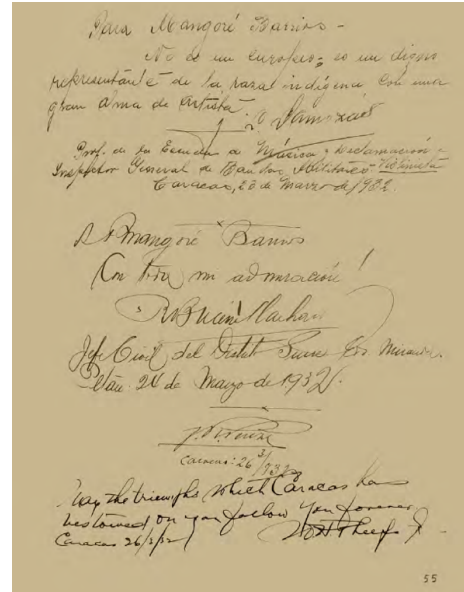 Para Mangoré Barrios -
No de un europeo; es un digno
representante de la raza indígena con una
gran alma de artista.
Prof. de la Escuela de Música y Declamación -
Inspector General de Bandas Militares - Violinista
Caracas, 23 de Marzo de 1932.
A Mangoré Barrios
Con toda mi admiración!
Jefe Civil del Distrito Sucre Edo Miranda.
24 de Marzo de 1932.
Caracas: 26 3/932
May the triumphs which Caracas has
bestowed on you follow you forever
Caracas 26/3/32
55